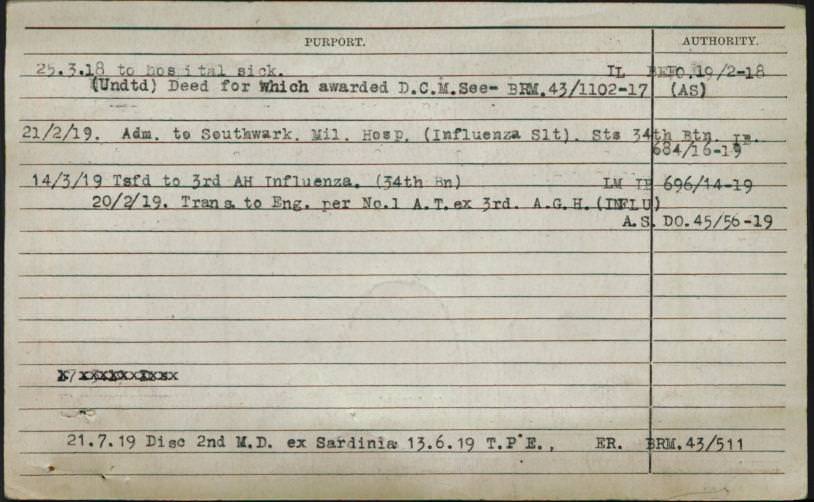 PURPORT. AUTHORITY.
25.3.18 to hospital sick. IL 19/2-18
(Undtd) Deed for Which awarded D.C.M.See- BRM.43/1102-17 (AS)
21/2/19. Adm. to Southwark. Mil. Hosp. (Influenza Slt). Sts 34th Btn. IE.
684/16-19
14/3/19 Tsfd to 3rd AH Influenza. (34th Bn) LM IE 696/14-19
20/2/19. Trans. to Eng. per No.1 A.T.ex 3rd. A.G.H.(INFLU)
A.S. DO.45/56-19
21.7.19 Disc 2nd M.D. ex Sardinia 13.6.19 T.P.E., ER. BRM.43/511